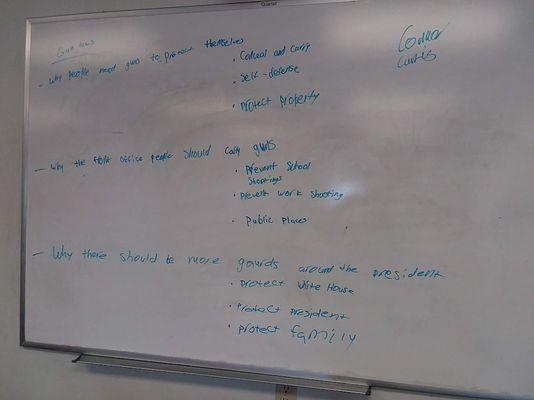 Quartet
Gun laws
Conner
Curtis
- Why people need guns to protect themselves
• Coceal and carry
• Self-defense
• Protect Property
- Why the front office people should carry guns
• Prevent School
Shootings
• Prevent work shooting
• Public Places
- Why there should be more gaurds around the president
• Protect White House
• Protect president
• Protect family